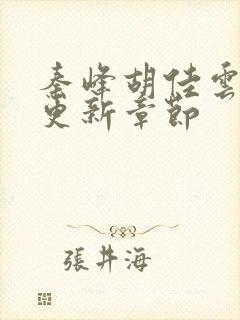 秦峰胡佳雲
更新章節
張井海